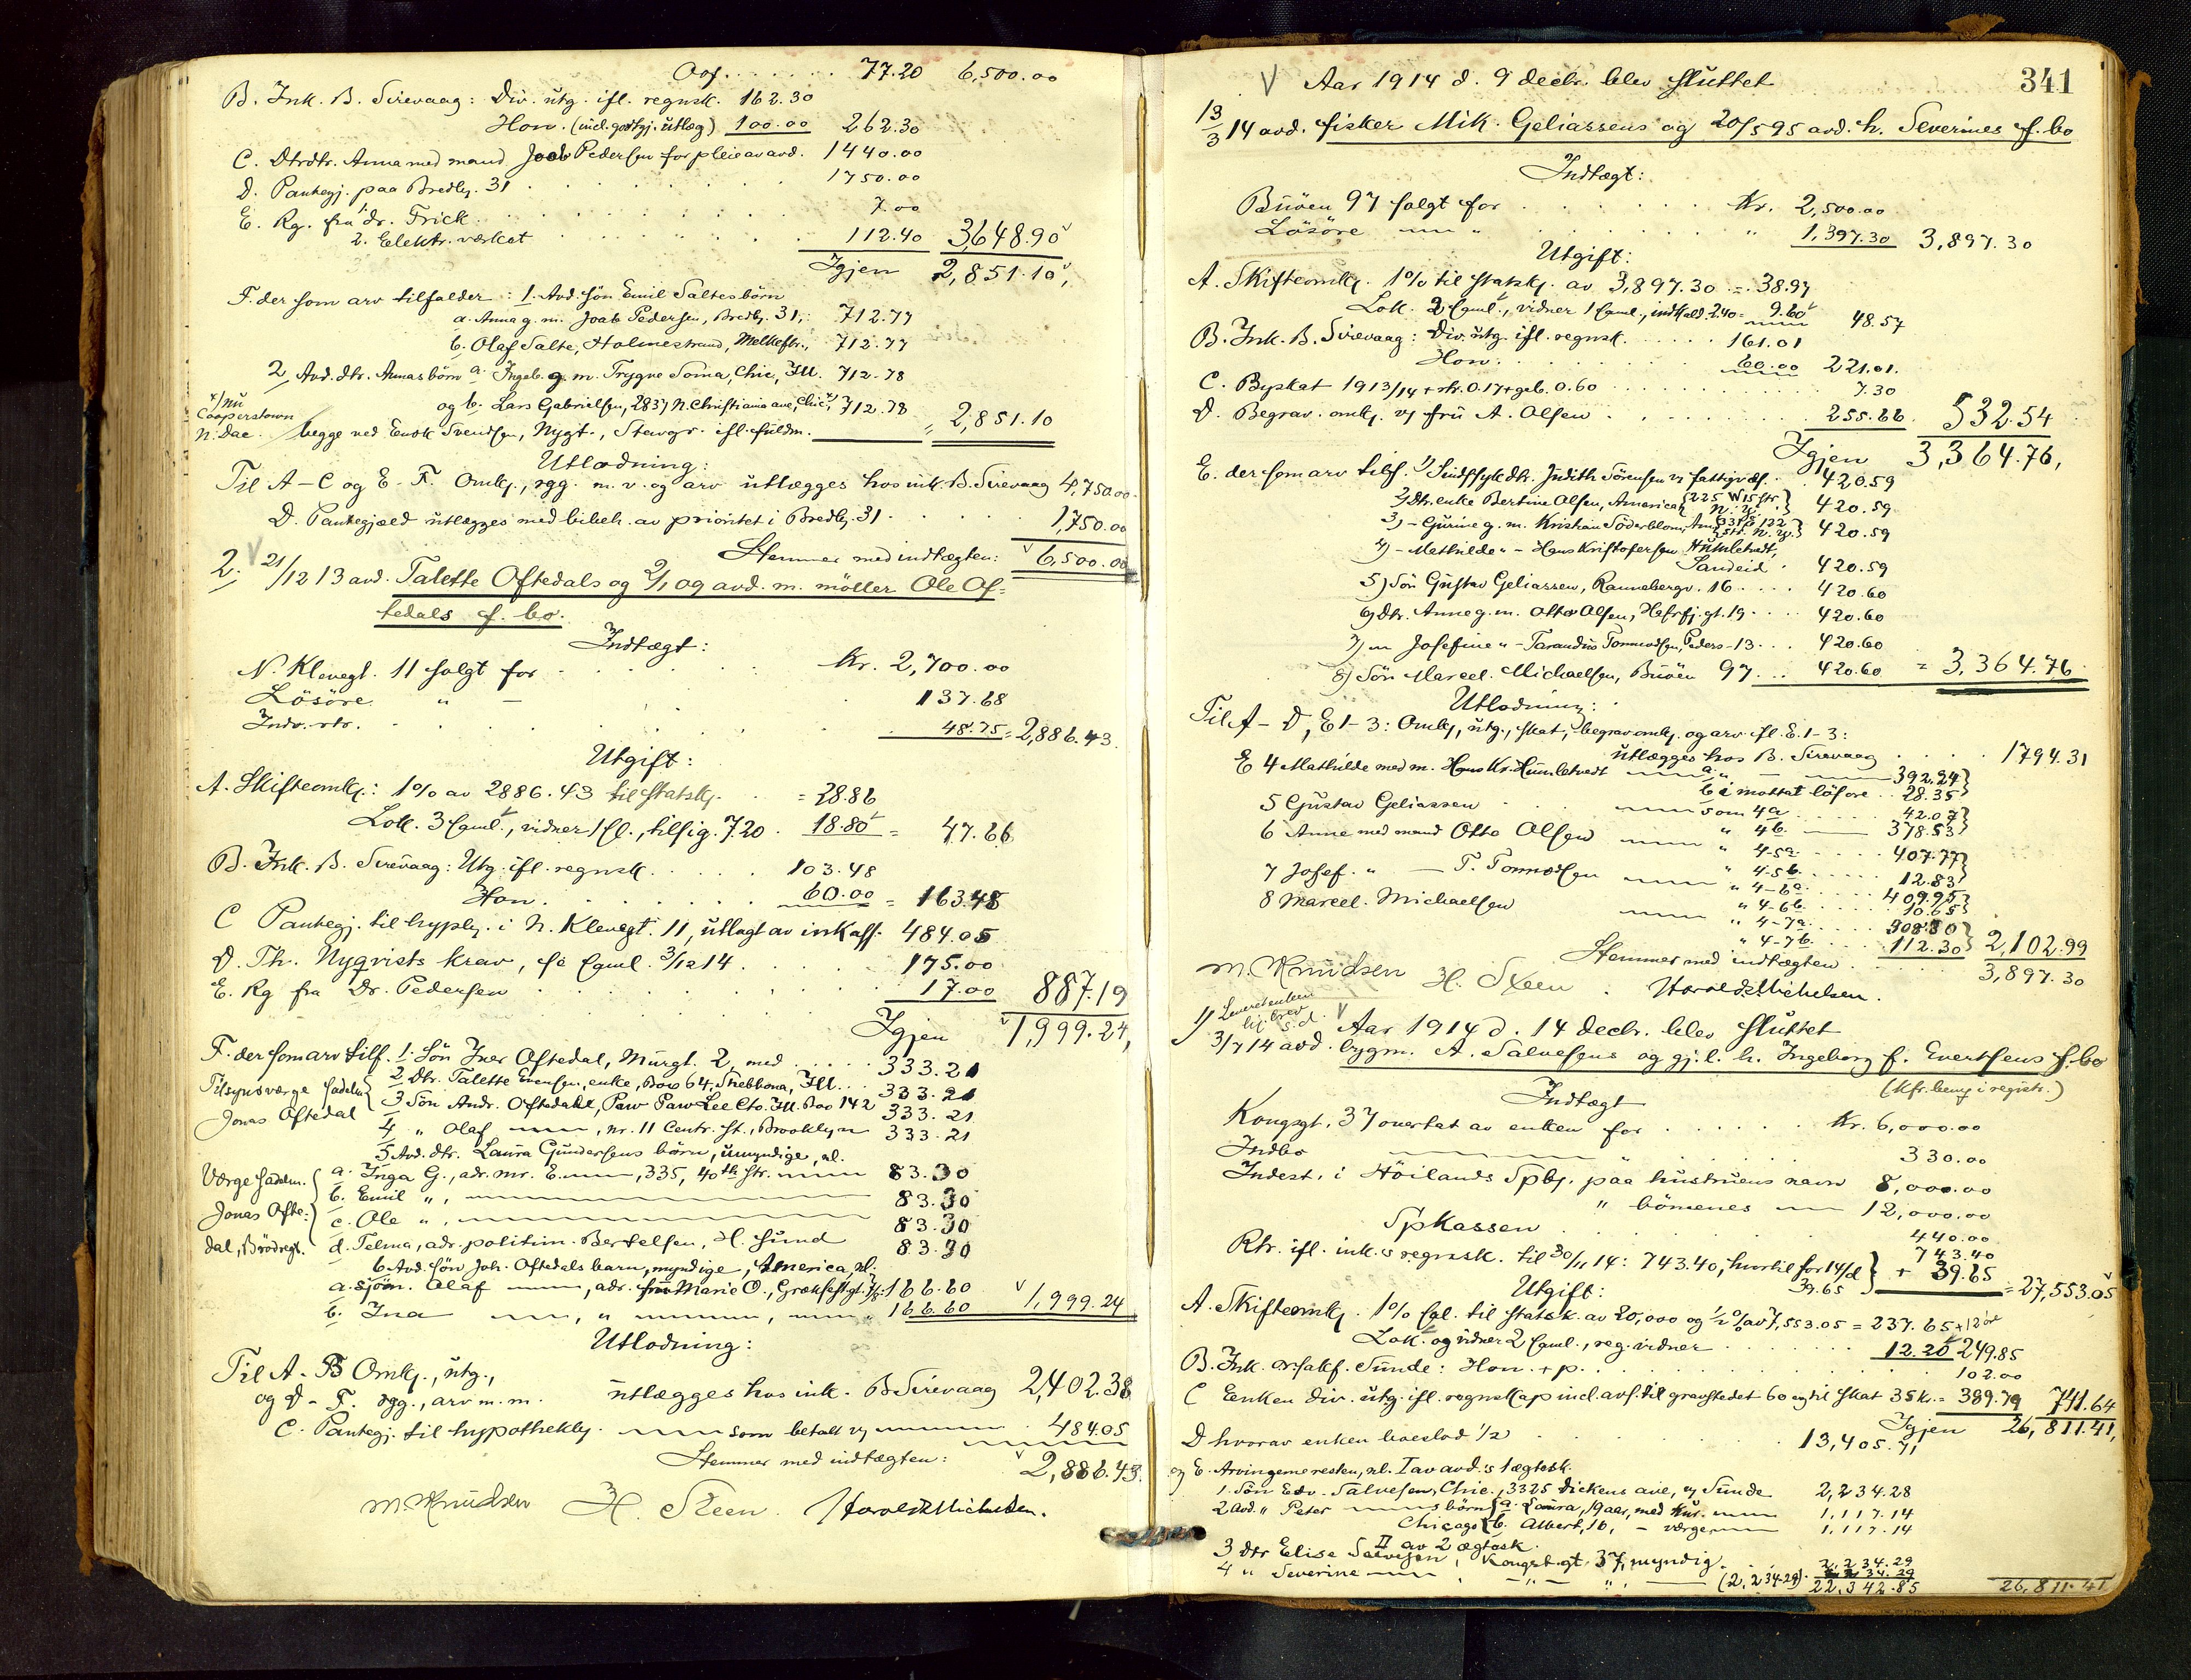 Ovf. . . . . . . 77.20 6,500.00
B. Ink. B. Sirevaag: Div. utg. ifl. regnsk. 162.30
Hon. (incl. godtgj. utlæg) 100.00 262.30
C. Dtrdtr. Anna med mand Joab Pedersen for pleie av avd. 1440.00
D. Pantegj. paa Bredbg. 31 . . . 1750.00
E. Rg. fra 1. dr. Frick . . . 7.00
2. Elektr. værket . . . 112.40 3,648.90
Igjen 2,851.10,
F. der som arv tilfalder: 1. Avd. søn Emil Saltes børn
a. Anna g. m. Joab Pedersen, Bredbg. 31,: 712.77
b. Olaf Salte, Holmestrand, Melkefbr., 712.77
2, Avd. dtr. Annas børn a. Ingeb. g. m. Trygve Soma, Chic., Ill. 712.78
x) nu Cooperstown N. Dac.
og b. Lars Gabrielsen, 2837 N. Christiania ave, Chic., x) 712.78
begge ved Enok Svendsen, Nygt., Stavgr. ifl. fuldm. = 2,851.10
Utlodning:
Til A-C og E-F. Omk., rgg. m. v. og arv utlægges hos ink. B. Sirevaag 4,750.00
D. Pantegjæld utlægges med bibeh. av prioritet i Bredbg. 31 . . . 1,750.00
Stemmer med indtægten: 6,500.00
2. 21/12 13 avd. Talette Oftedals og 9/1 09 avd. m. møller Ole Of-
tedals f. bo.
Indtægt:
N. Klevegt. 11 solgt for . . . Kr. 2,700.00
Løsøre " — . 137.68
Indv. rtr. . . . 48.75 = 2,886.43
Utgift:
A. Skifteomk.: 1% av 2886.43 til statsk. . = 28.86
Lok. 3 saml., vidner 1 sl., tilsig. 7.20 . 18.80 = 47.66
B. Ink. B. Sirevaag: Utg. ifl. regnsk. . . . 103.48
Hon. . . . 60.00 = 163.48
C Pantegj. til hypbk. i N. Klevegt. 11, utlagt av inkass. 484.05
D. Th. Nyqvists krav, se saml. 3/12 14 . . . 175.00
E. Rg fra Dr. Pedersen . . . 17.00 887.19
Igjen 1,999.24,
F. der som arv tilf. 1. Søn Iver Oftedal, Murgt. 2, med . . . 333.21
Tilsynsværge sadelm. Jonas Oftedal
2 Dtr. Talette Evensen, enke, Box 64, Shabbona, Ill. . . 333.21
3 Søn Andr. Oftedahl, Paw Paw Lee Cto. Ill. Box 142 333.21
4 " Olaf —, nr. 11 Centr. st., Brooklyn 333.21
5 Avd. dtr. Laura Gundersens børn, umyndige, nl.
Værge sadelm. Jonas Oftedal, Brødregt.
a. Inga G., adr. mr. E. —, 335, 40th str. — 83.30
b. Emil ", — 83.30
c. Ole ", — 83.30
d. Telma, adr. politim. Bertelsen, H. sund 83.30
6 Avd. søn Joh. Oftedals barn, myndige, America, nl.
a. sjøm. Olaf —, adr. fru Marie O., 166.60
b. Ina —, " —, — 166.60 1,999.24
Utlodning:
Til A-B Omk., utg.,
og D-F. rgg., arv m. m. utlægges hos ink. B Sirevaag 2,402.38
C. Pantegj. til hypothekbk. — som betalt v — 484.05
Stemmer med indtægten: 2,886.43
M. Knudsen H. Steen Harald Michelsen.
341
Aar 1914 d. 9 decbr. blev sluttet
13/3 14 avd. fisker Mik. Geliassens og 20/5 95 avd. h. Severines f. bo
Indtægt:
Buøen 97 solgt for . . . Kr. 2,500.00
Løsøre — " . . . " 1,397.30 3,897.30
Utgift:
A. Skifteomk. 1% til statsk. av 3,897.30 = 38.97
Lok. 2 saml., vidner 1 saml., indkald. 2.40 = 9.60 48.57
B. Ink. B. Sirevaag: Div. utg. ifl. regnsk. . . . 161.01
Hon. . . . 60.00 221.01.
C. Byskat 1913/14 + rtr. 0.17 + geb. 0.60 . . . 7.30
D. Begrav. omk. v fru A. Olsen . . . 255.66 532.54
Igjen 3,364.76,
E. der som arv tilf. 1) Sindssyk dtr. Judith Sørensen v fattigvæs. . 420.59
2) Dtr. enke Bertine Olsen, America {225 W 15 str. N. Y.} 420.59
3) – Gurine g. m. Kristian Söderblom, Am. 420.59
4) – Mathilde " – Hans Kristofersen Humletvedt,
Sandeid . 420.59
5) Søn Gustav Geliassen, Rannebergv. 16 . . . 420.60
6) Dtr. Anne g. m. Otto Olsen, Hafrsfj. gt. 19 . . . 420.60
7) — Josefine " – Tarandus Tonnesen, Peders-13 . . . 420.60
8) Søn Marcel. Michaelsen, Buøen 97 . . . 420.60 = 3,364.76
Utlodning:
Til A – D, E 1-3: Omk., utg., skat, begrav omk. og arv ifl. E. 1-3:
utlægges hos B. Sirevaag . . . 1794.31
E 4 Mathilde med m. Hans Kr. Humletvedt — a. " — 392.24
b. i mottat løsøre . . 28.35
5 Gustav Geliassen . — som 4 a . . . 42.07
" 4 b. — 378.53
6 Anne med mand Otto Olsen — " 4-5 a. . . . 407.77
" 4-5 b. . . . 12.83
7 Josef. " — T. Tonnesen — " 4-6 a. . . . 409.95
" 4-6 b. . . . 10.65
8 Marcel. Michaelsen — " 4-7 a. . . . 308.30
" 4-7 b. . . . 112.30 2,102.99
Stemmer med indtægten . . . 3,897.30
M. Knudsen H. Steen . Harald Michelsen.
Aar 1914 d. 14 decbr. blev sluttet
3/7 14 avd. bygm. A. Salvesens og gj. l. h. Ingeborg f. Evertsens f. bo
(Kfr. bem. i registr.)
Indtægt
Kongsgt. 37 overtat av enken for . . . Kr. 6,000.00
Indbo — . . . 330.00
Indest. i Høilands Spbk. paa hustruens navn 8,000.00
" børnenes — 12,000.00
Spkassen . . . 440.00
Rtr. ifl. ink.s regnsk. til 30/11 14: 743.40, hvortil for 14/d 743.40
39.65 + 39.65 = 27,553.05
Utgift:
A. Skifteomk. 1% sgl. til statsk. av 20,000 og 1/2% av 7,553.05 = 237.65 + 12 øre
Lok. og vidner 2 saml., reg. vidner . . . 12.20 249.85
B. Ink. orsakf. Sunde: Hon. + p. . . . 102.00
C Enken div. utg. ifl. regnskap incl. avs. til gravstedet 60 og til skat 35 k. = 389.79 741.64
Igjen 26,811.41,
D hvorav enken boeslod 1/2 . . . 13,405.71
og E. Arvingerne resten, nl. I av avd.s 1 ægtesk.
1. Søn Edv. Salvesen, Chic., 3325 Dickens ave, v Sunde 2,234.28
2 Avd. " Peter —s børn a. Laura, 19 aar, med kur. — 1,117.14
Chicago b. Albert, 16, – værge — 1,117.14
II av 2 ægtesk.
3 Dtr Elise Salvesen, Kongsgt. 37, myndig . . 2,234.29
4 " Severine — , — " — " — (2,234.29) . 2,234.29
22,342.85 26,811.41